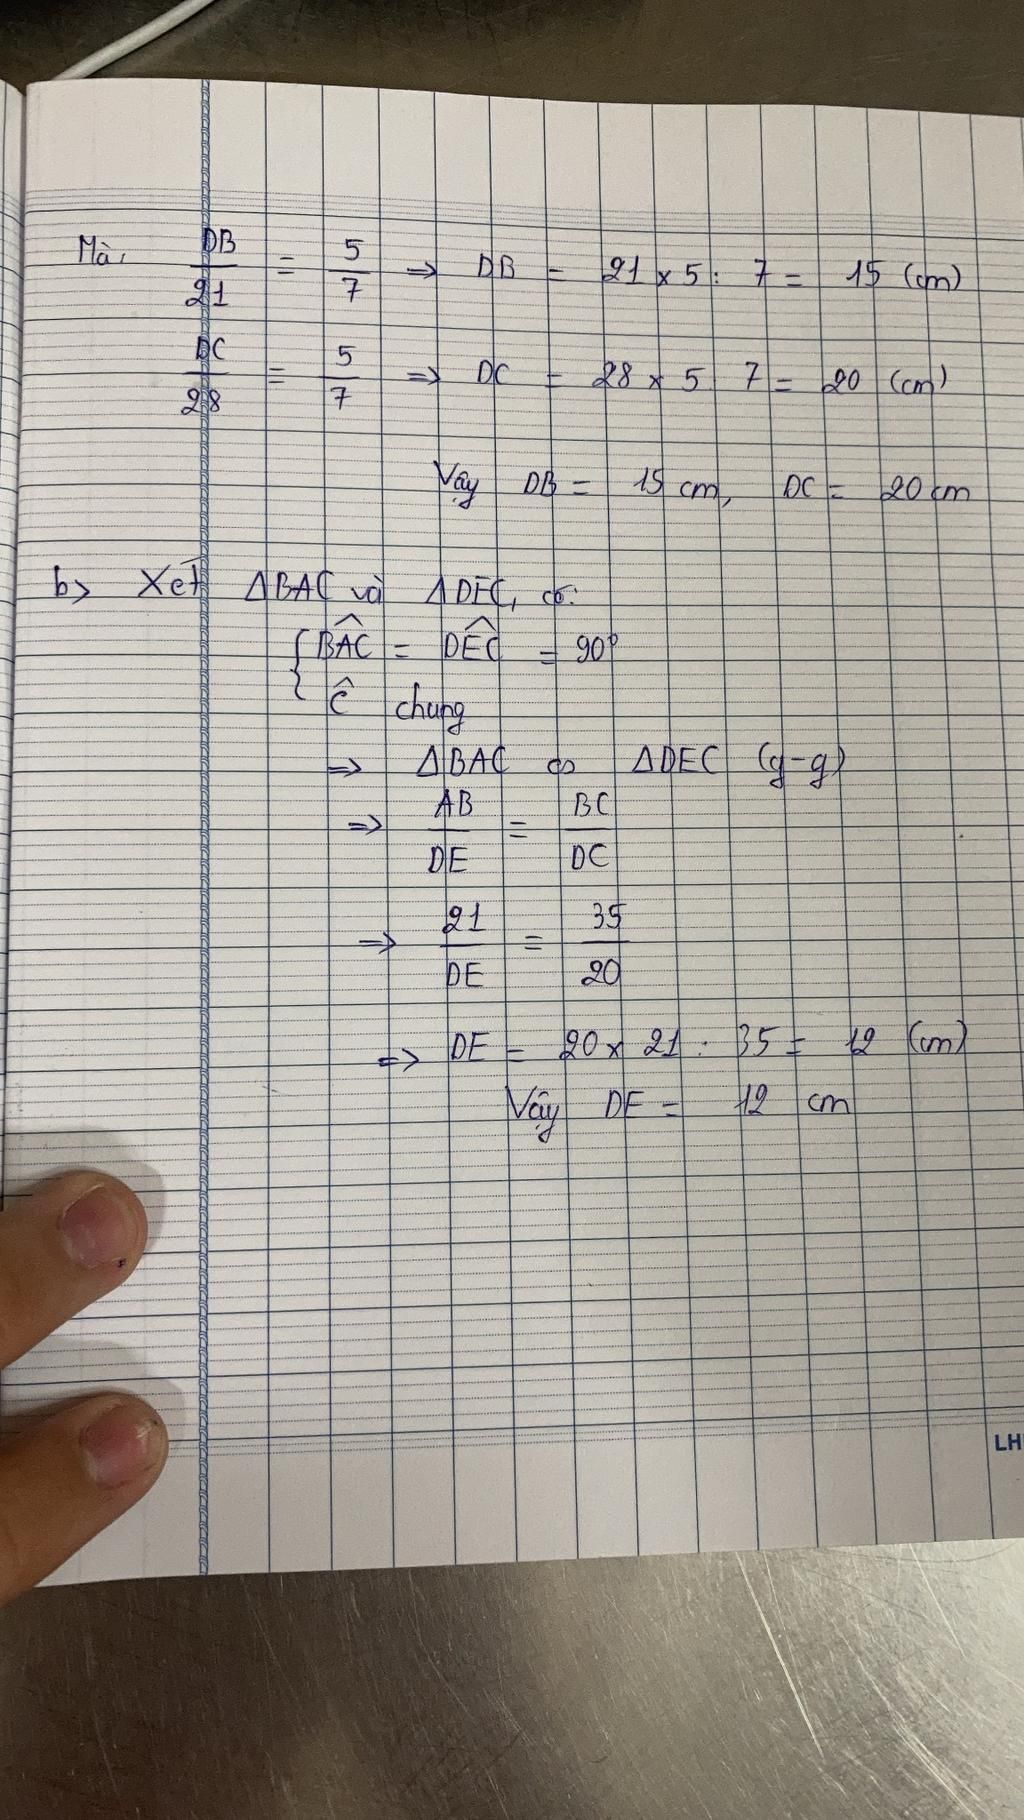 Mà, DB/21 = 5/7 ⇒ DB = 21 × 5 : 7 = 15 (cm)
DC/28 = 5/7 ⇒ DC = 28 × 5 7 = 20 (cm)
Vậy DB = 15 cm, DC = 20 cm
b> Xét ΔBAC và ΔDEC, có:
{ BAC^ = DEC^ = 90°
Ĉ chung
⇒ ΔBAC ∽ ΔDEC (g-g)
⇒ AB/DE = BC/DC
⇒ 21/DE = 35/20
⇒ DE = 20 × 21 : 35 = 12 (cm)
Vậy DE = 12 cm
LH